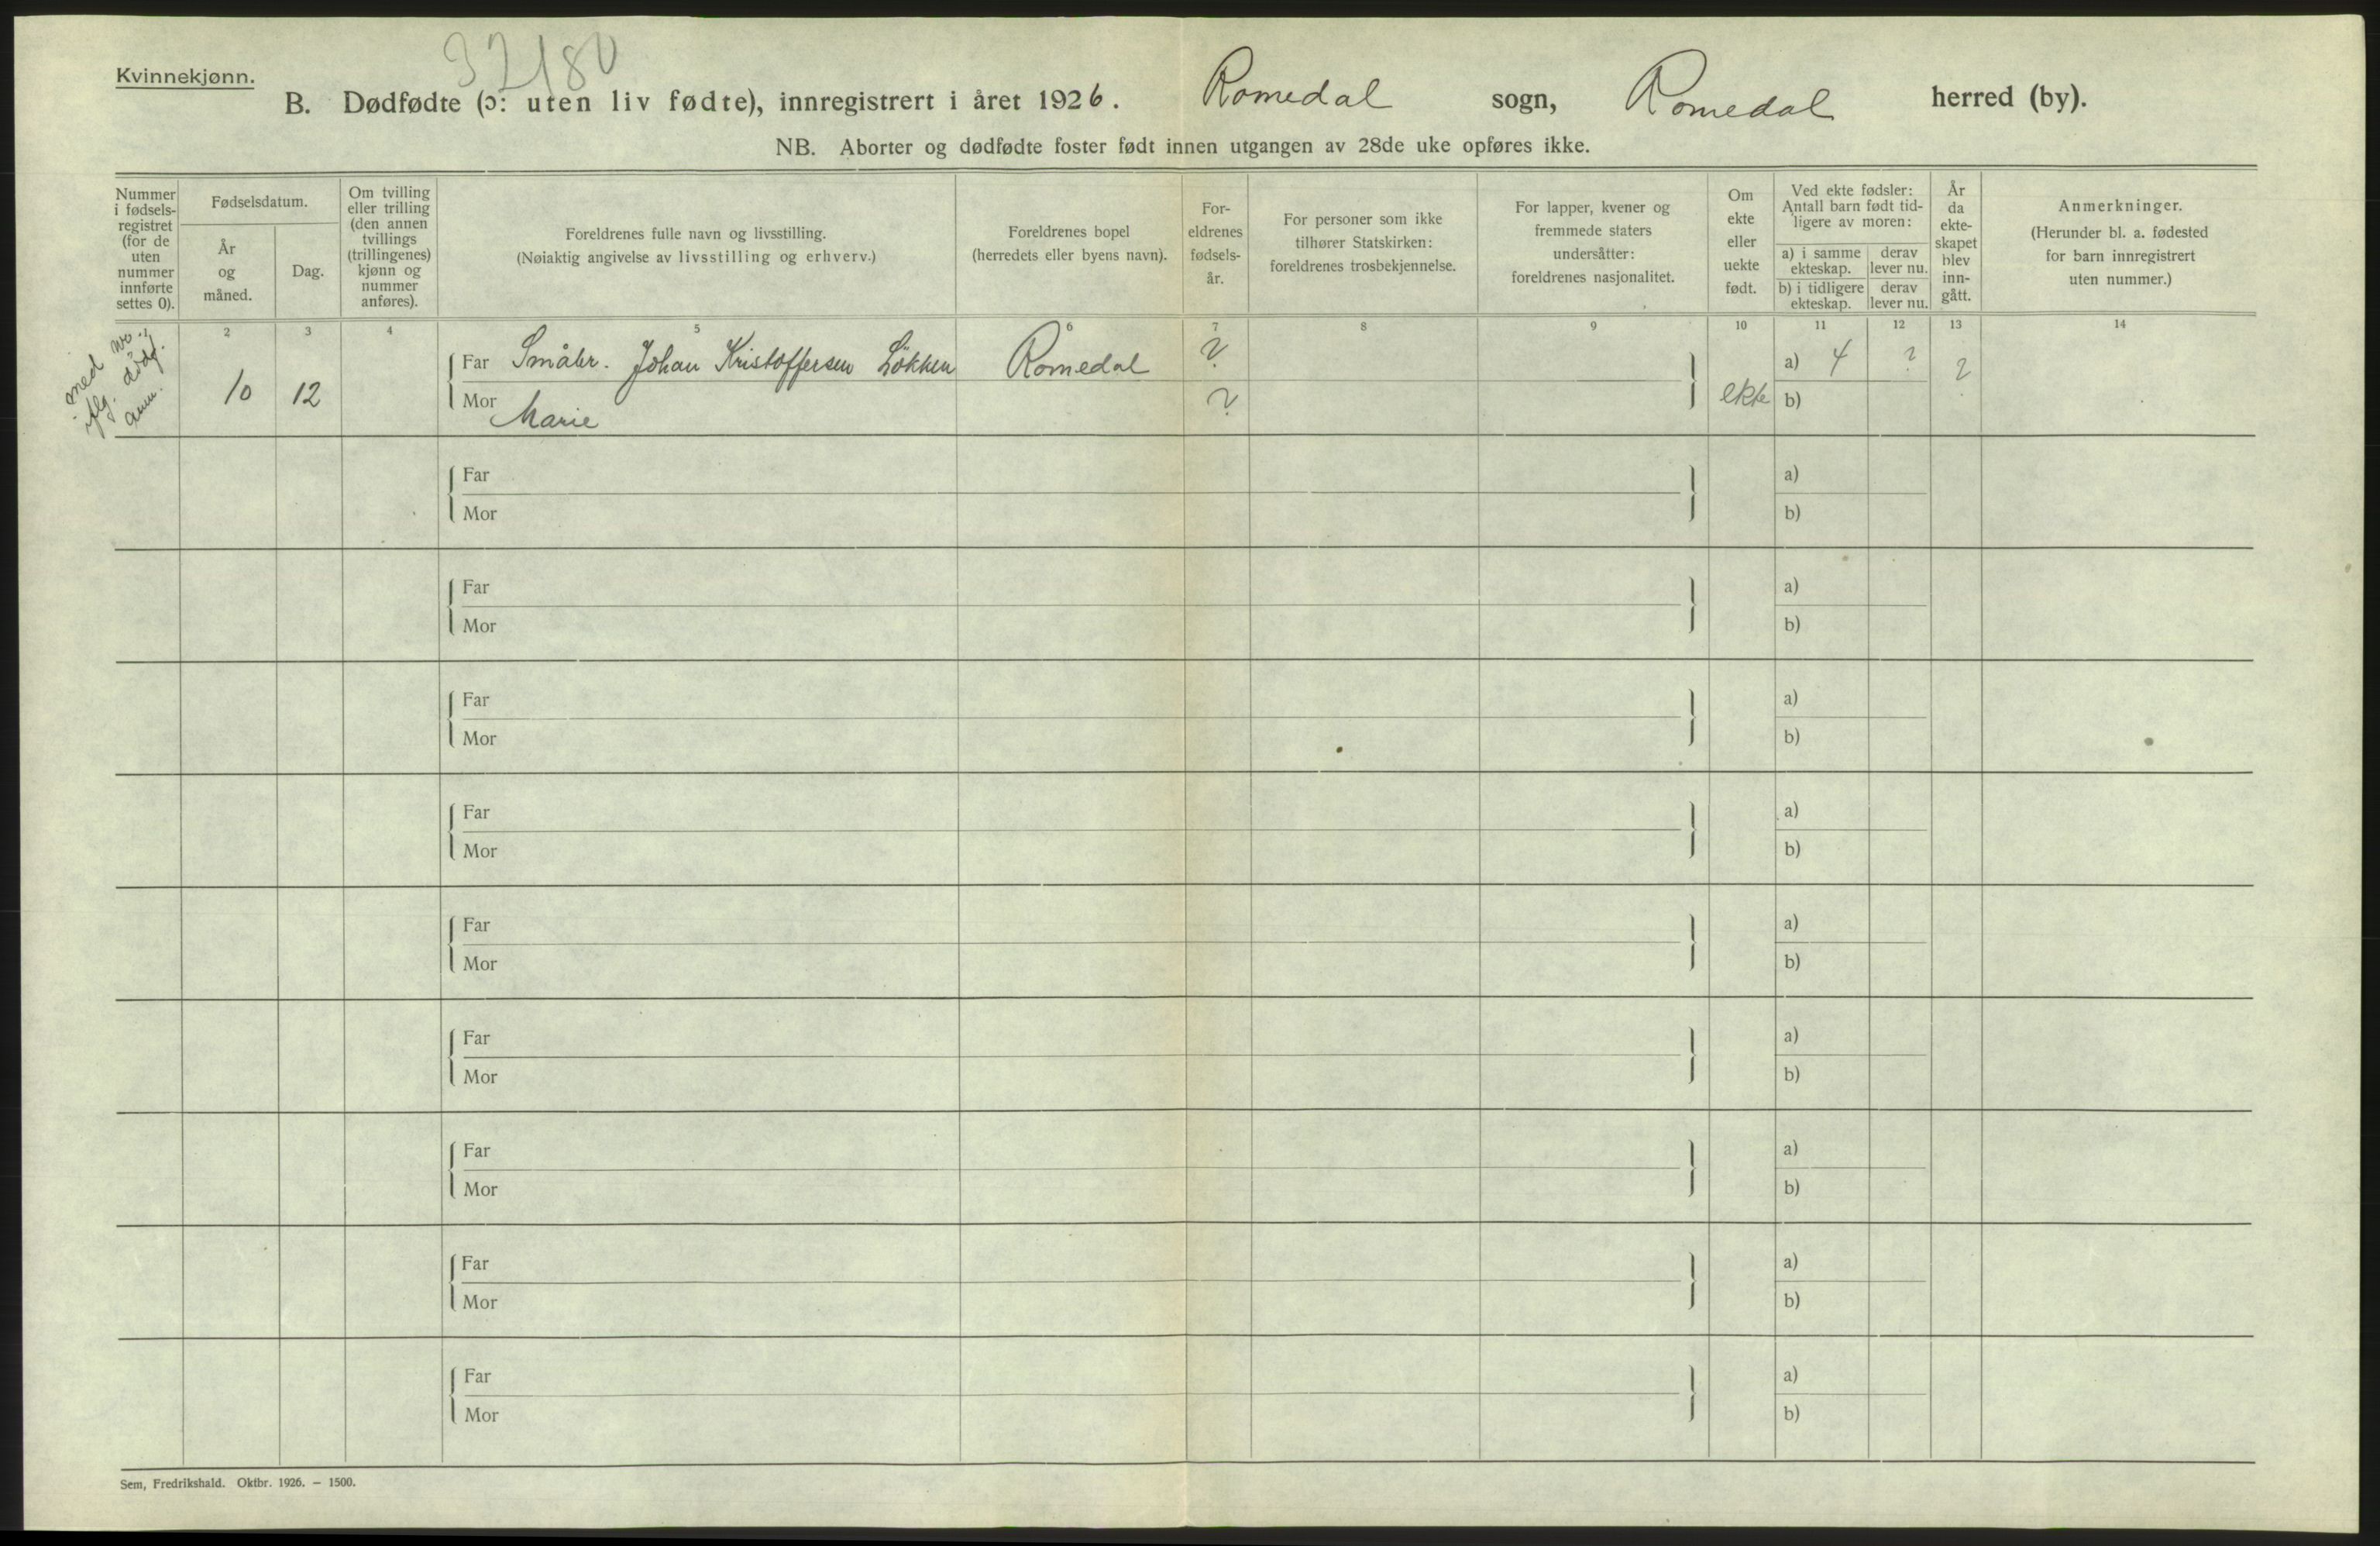 Kvinnekjønn.
32180
B. Dødfødte (ɔ: uten liv fødte), innregistrert i året 1926. Romedal sogn, Romedal herred (by).
NB. Aborter og dødfødte foster født innen utgangen av 28de uke opføres ikke.
Nummer
i fødsels-
registret
(for de
uten
nummer
innførte
settes 0).
Fødselsdatum.
År
og
måned.
Dag.
Om tvilling
eller trilling
(den annen
tvillings
(trillingenes)
kjønn og
nummer
anføres).
Foreldrenes fulle navn og livsstilling.
(Nøiaktig angivelse av livsstilling og erhverv.)
Foreldrenes bopel
(herredets eller byens navn).
For-
eldrenes
fødsels-
år.
For personer som ikke
tilhører Statskirken:
foreldrenes trosbekjennelse.
For lapper, kvener og
fremmede staters
undersåtter:
foreldrenes nasjonalitet.
Om
ekte
eller
uekte
født.
Ved ekte fødsler:
Antall barn født tid-
ligere av moren:
a) i samme
ekteskap.
derav
lever nu.
b) i tidligere
ekteskap.
derav
lever nu.
År
da
ekte-
skapet
blev
inn-
gått.
Anmerkninger.
(Herunder bl. a. fødested
for barn innregistrert
uten nummer.)
1 2 3 4 5 6 7 8 9 10 11 12 13 14
med
iflg. dødf.
anm.
10 12
Far Småbr. Johan Kristoffersen Løkken Romedal ? a) 4 ? ?
Mor Marie ? ekte b)
Far a)
Mor b)
Far a)
Mor b)
Far a)
Mor b)
Far a)
Mor b)
Far a)
Mor b)
Far a)
Mor b)
Far a)
Mor b)
Far a)
Mor b)
Far a)
Mor b)
Sem, Fredrikshald. Oktbr. 1926. — 1500.